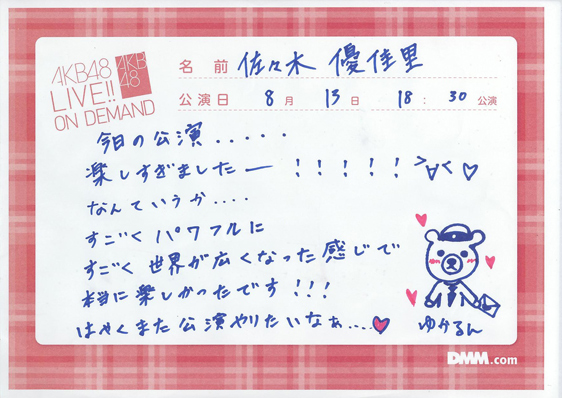 AKB48
LIVE!!
ON DEMAND
AKB
48
名前 佐々木 優佳里
公演日 8月 13日 18:30 公演
今日の公演.....
楽しすぎましたー !!!!! >∀<♡
なんていうか....
すごくパワフルに
すごく世界が広くなった感じで
本当に楽しかったです!!!
はやくまた公演やりたいなぁ...♥
ゆかるん
DMM.com